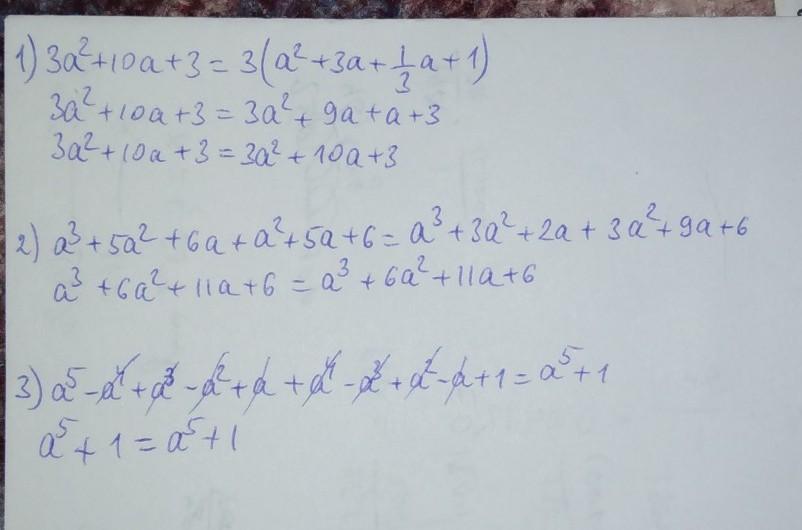 1) 3a²+10a+3=3(a²+3a+1/3a+1)
3a²+10a+3=3a²+9a+a+3
3a²+10a+3=3a²+10a+3
2) a³+5a²+6a+a²+5a+6=a³+3a²+2a+3a²+9a+6
a³+6a²+11a+6=a³+6a²+11a+6
3) a⁵-a⁴+a³-a²+a+a⁴-a³+a²-a+1=a⁵+1
a⁵+1=a⁵+1